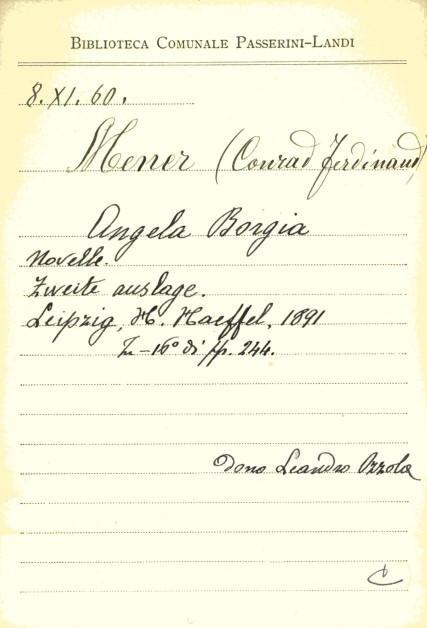 BIBLIOTECA COMUNALE PASSERINI-LANDI
8. XI. 60.
Mener (Conrad Ferdinand)
Angela Borgia
Novelle.
Zweite auslage.
Leipzig, H. Haeffel, 1891
In-16° di pp. 244.
Dono Leandro Ozzola